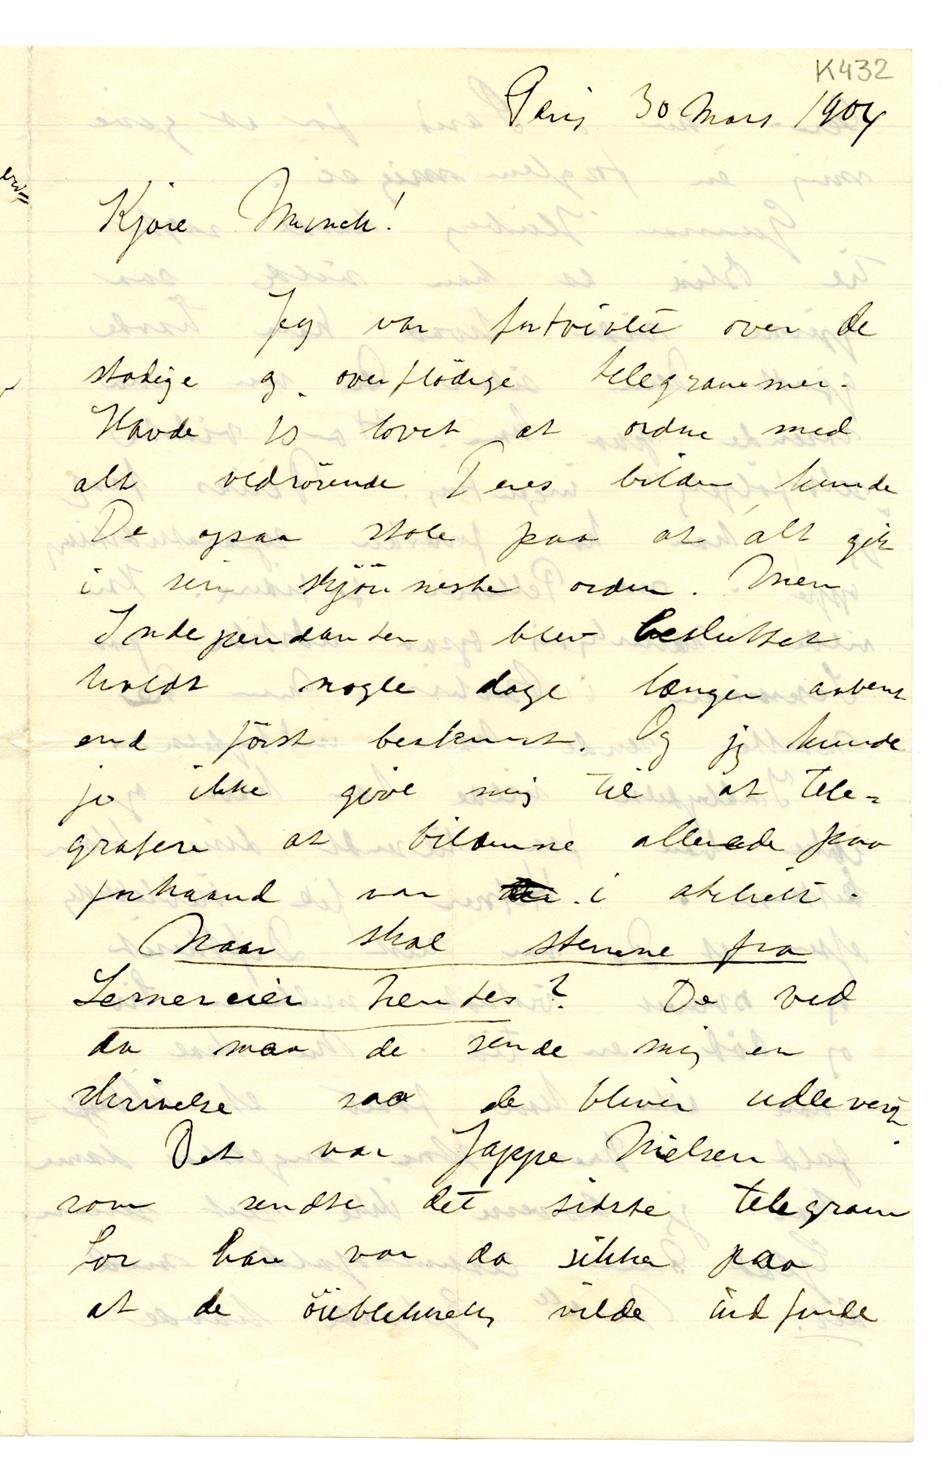 K432
Paris 30 Mars 1904
Kjære Munch!
Jeg var fortvivlet over de
stadige og overflödige telegrammer.
Havde jeg lovet at ordne med
alt vedrörende Deres billder kunde
De ogsaa stole paa at alt gik
i sin skjönneste orden. Men
Independanten blev besluttet
holdt nogle dage længer aabent
end först bestemt. Og jeg kunde
jo ikke give mig til at tele=
grafere at billderne allerede paa
forhaand var i atelieet.
Naar skal stenene fra
Lemercier hentes? De ved
da maa de sende mig en
skrivelse saa de bliver udleveret.
Det var Jappe Nielsen
som sendte det sidste telegram
for han var da sikker paa
at de öieblikkelig vilde indfinde